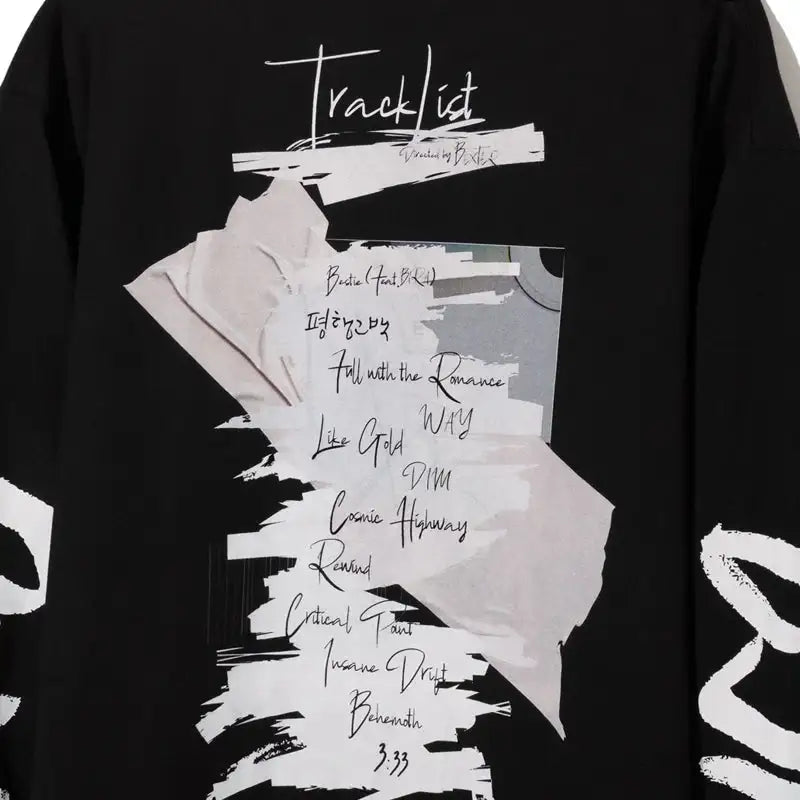 TrackList
Directed by BEXTER
Bestie (feat. BIRA)
평행고백
Full with the Romance
WAY
Like Gold
DIM
Cosmic Highway
Rewind
Critical Point
Insane Drift
Behemoth
3:33